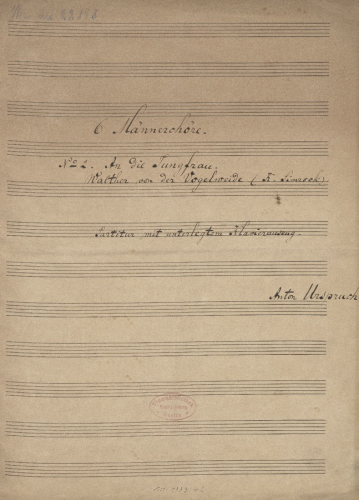 6 Männerchöre.
No 2. An die Jungfrau.
Walther von der Vogelweide (K. Simrock)
Partitur mit unterlegtem Klavierauszug.
Anton Urspruch